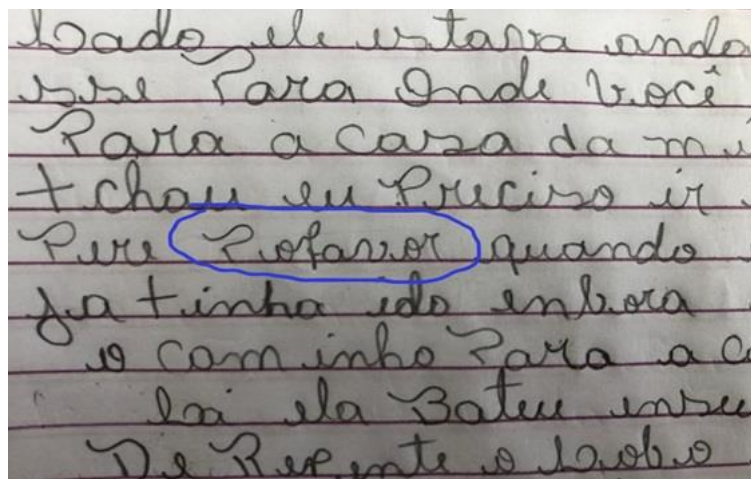 Lobo ele estava anda
sse Para Onde Você
Para a casa da mi
tchau eu Preciso ir
Pere Pofavor quando
ja tinha ido enbora
o caminho Para a ca
lai ela Bateu
De Repente o Lobo o